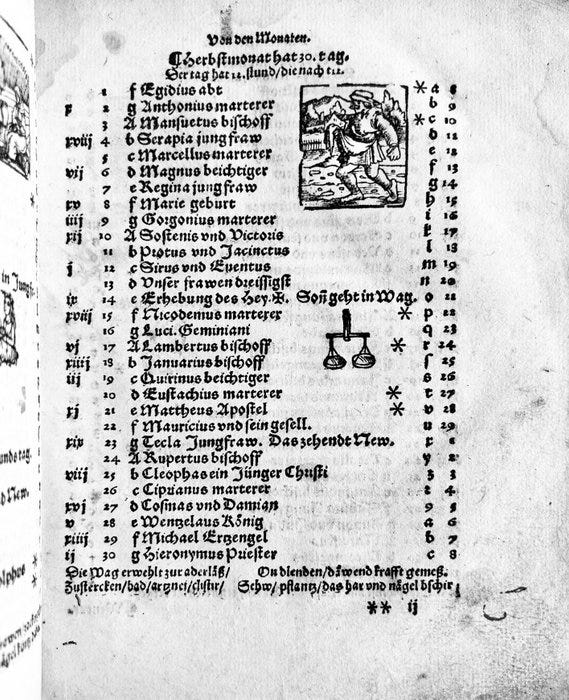 Von den Monaten.
Herbstmonat hat 30. tag.
Der tag hat 12. stund/die nacht 12.
1 f Egidius abt * a 8
x 2 g Anthonius marterer b 9
3 A Mansuetus bischoff * c 10
xviij 4 b Serapia jungfraw d 11
5 c Marcellus marterer e 12
vij 6 d Magnus beichtiger f 13
7 e Regina jungfraw g 14
xv 8 f Marie geburt h 15
iiij 9 g Gorgonius marterer i 16
xij 10 A Sostenis vnd Victoris k 17
11 b Protus vnd Jacinctus l 18
j 12 c Sirus vnd Euentus m 19
13 d Vnser frawen dreissigst n 20
ix 14 e Erhebung des Hey. ✠. Soñ geht in Wag. o 21
xvij 15 f Nicodemus marterer * p 22
16 g Luci. Geminiani q 23
vj 17 A Lambertus bischoff * r 24
xiiij 18 b Januarius bischoff s 25
iij 19 c Quirinus beichtiger s 26
20 d Eustachius marterer * t 27
xj 21 e Mattheus Apostel * v 28
22 f Mauricius vnd sein gesell. u 29
xix 23 g Tecla Jungfraw. Das zehendt New. x 1
24 A Rupertus bischoff y 2
viij 25 b Cleophas ein Jünger Christi z 3
26 c Ciprianus marterer 4
xvj 27 d Cosmas vnd Damian 9 5
v 28 e Wentzelaus König a 6
xiij 29 f Michael Ertzengel b 7
ij 30 g Hieronymus Priester c 8
Die Wag erwehlt zur aderläß/ On blenden/däwend krafft gemeß.
Zustercken/bad/artznei/clistir/ Schw/ pflantz/das har vnd nägel bschir
** ij